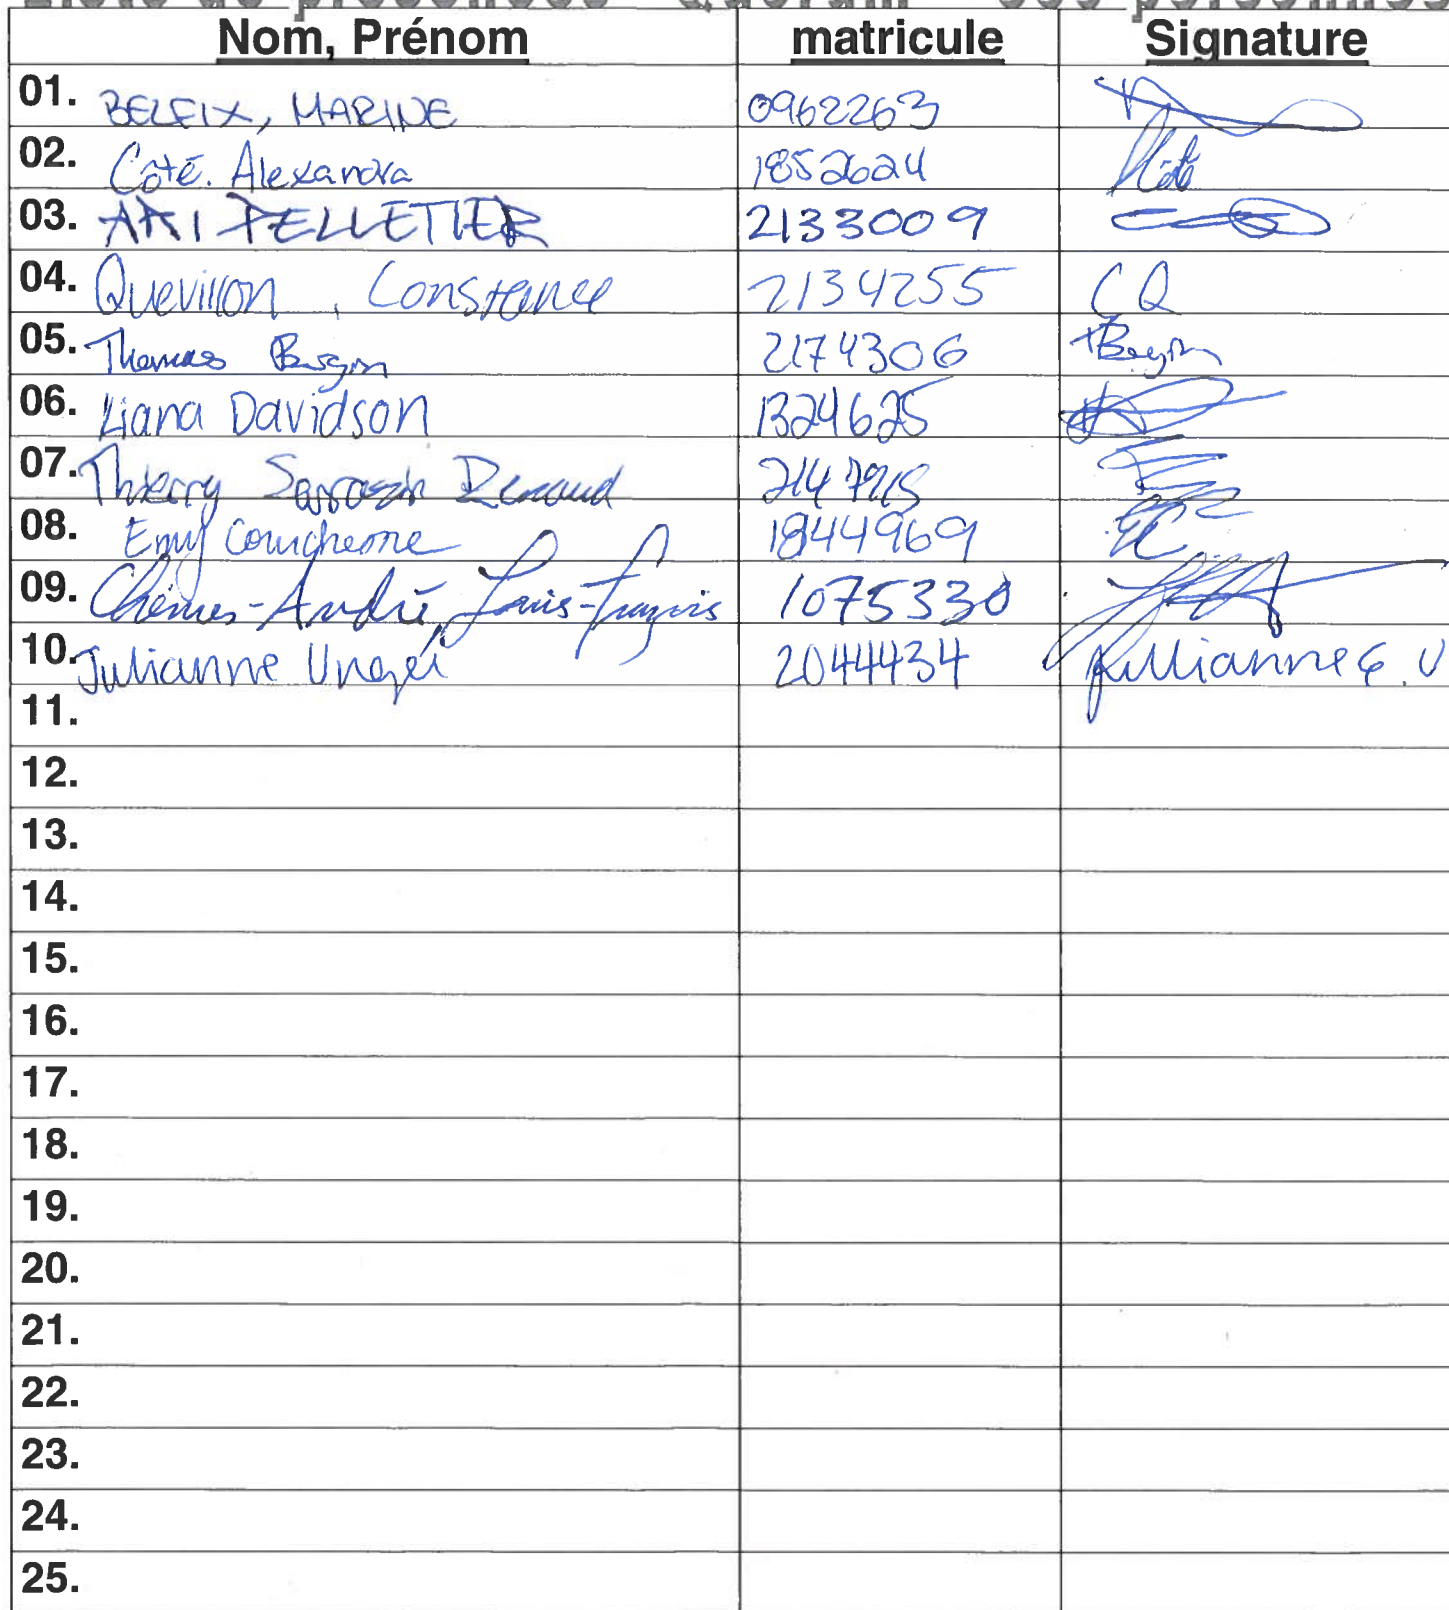 Liste de présences - Quorum
Nom, Prénom matricule Signature
01. BELFIX, MARINE 0962263
02. Côté. Alexandra 1852624 Côté
03. ARI PELLETIER 2133009
04. Quevillon, Constance 2134255 CQ
05. Thomas Bégin 2174306 TBégin
06. Liana Davidson 1324625
07. Thierry Sarrazin Renaud
08. Emy Courchesne 1844969 EC
09. -André, Louis-François 1075330
10. Julianne 2044434 Julianne G.V
11.
12.
13.
14.
15.
16.
17.
18.
19.
20.
21.
22.
23.
24.
25.